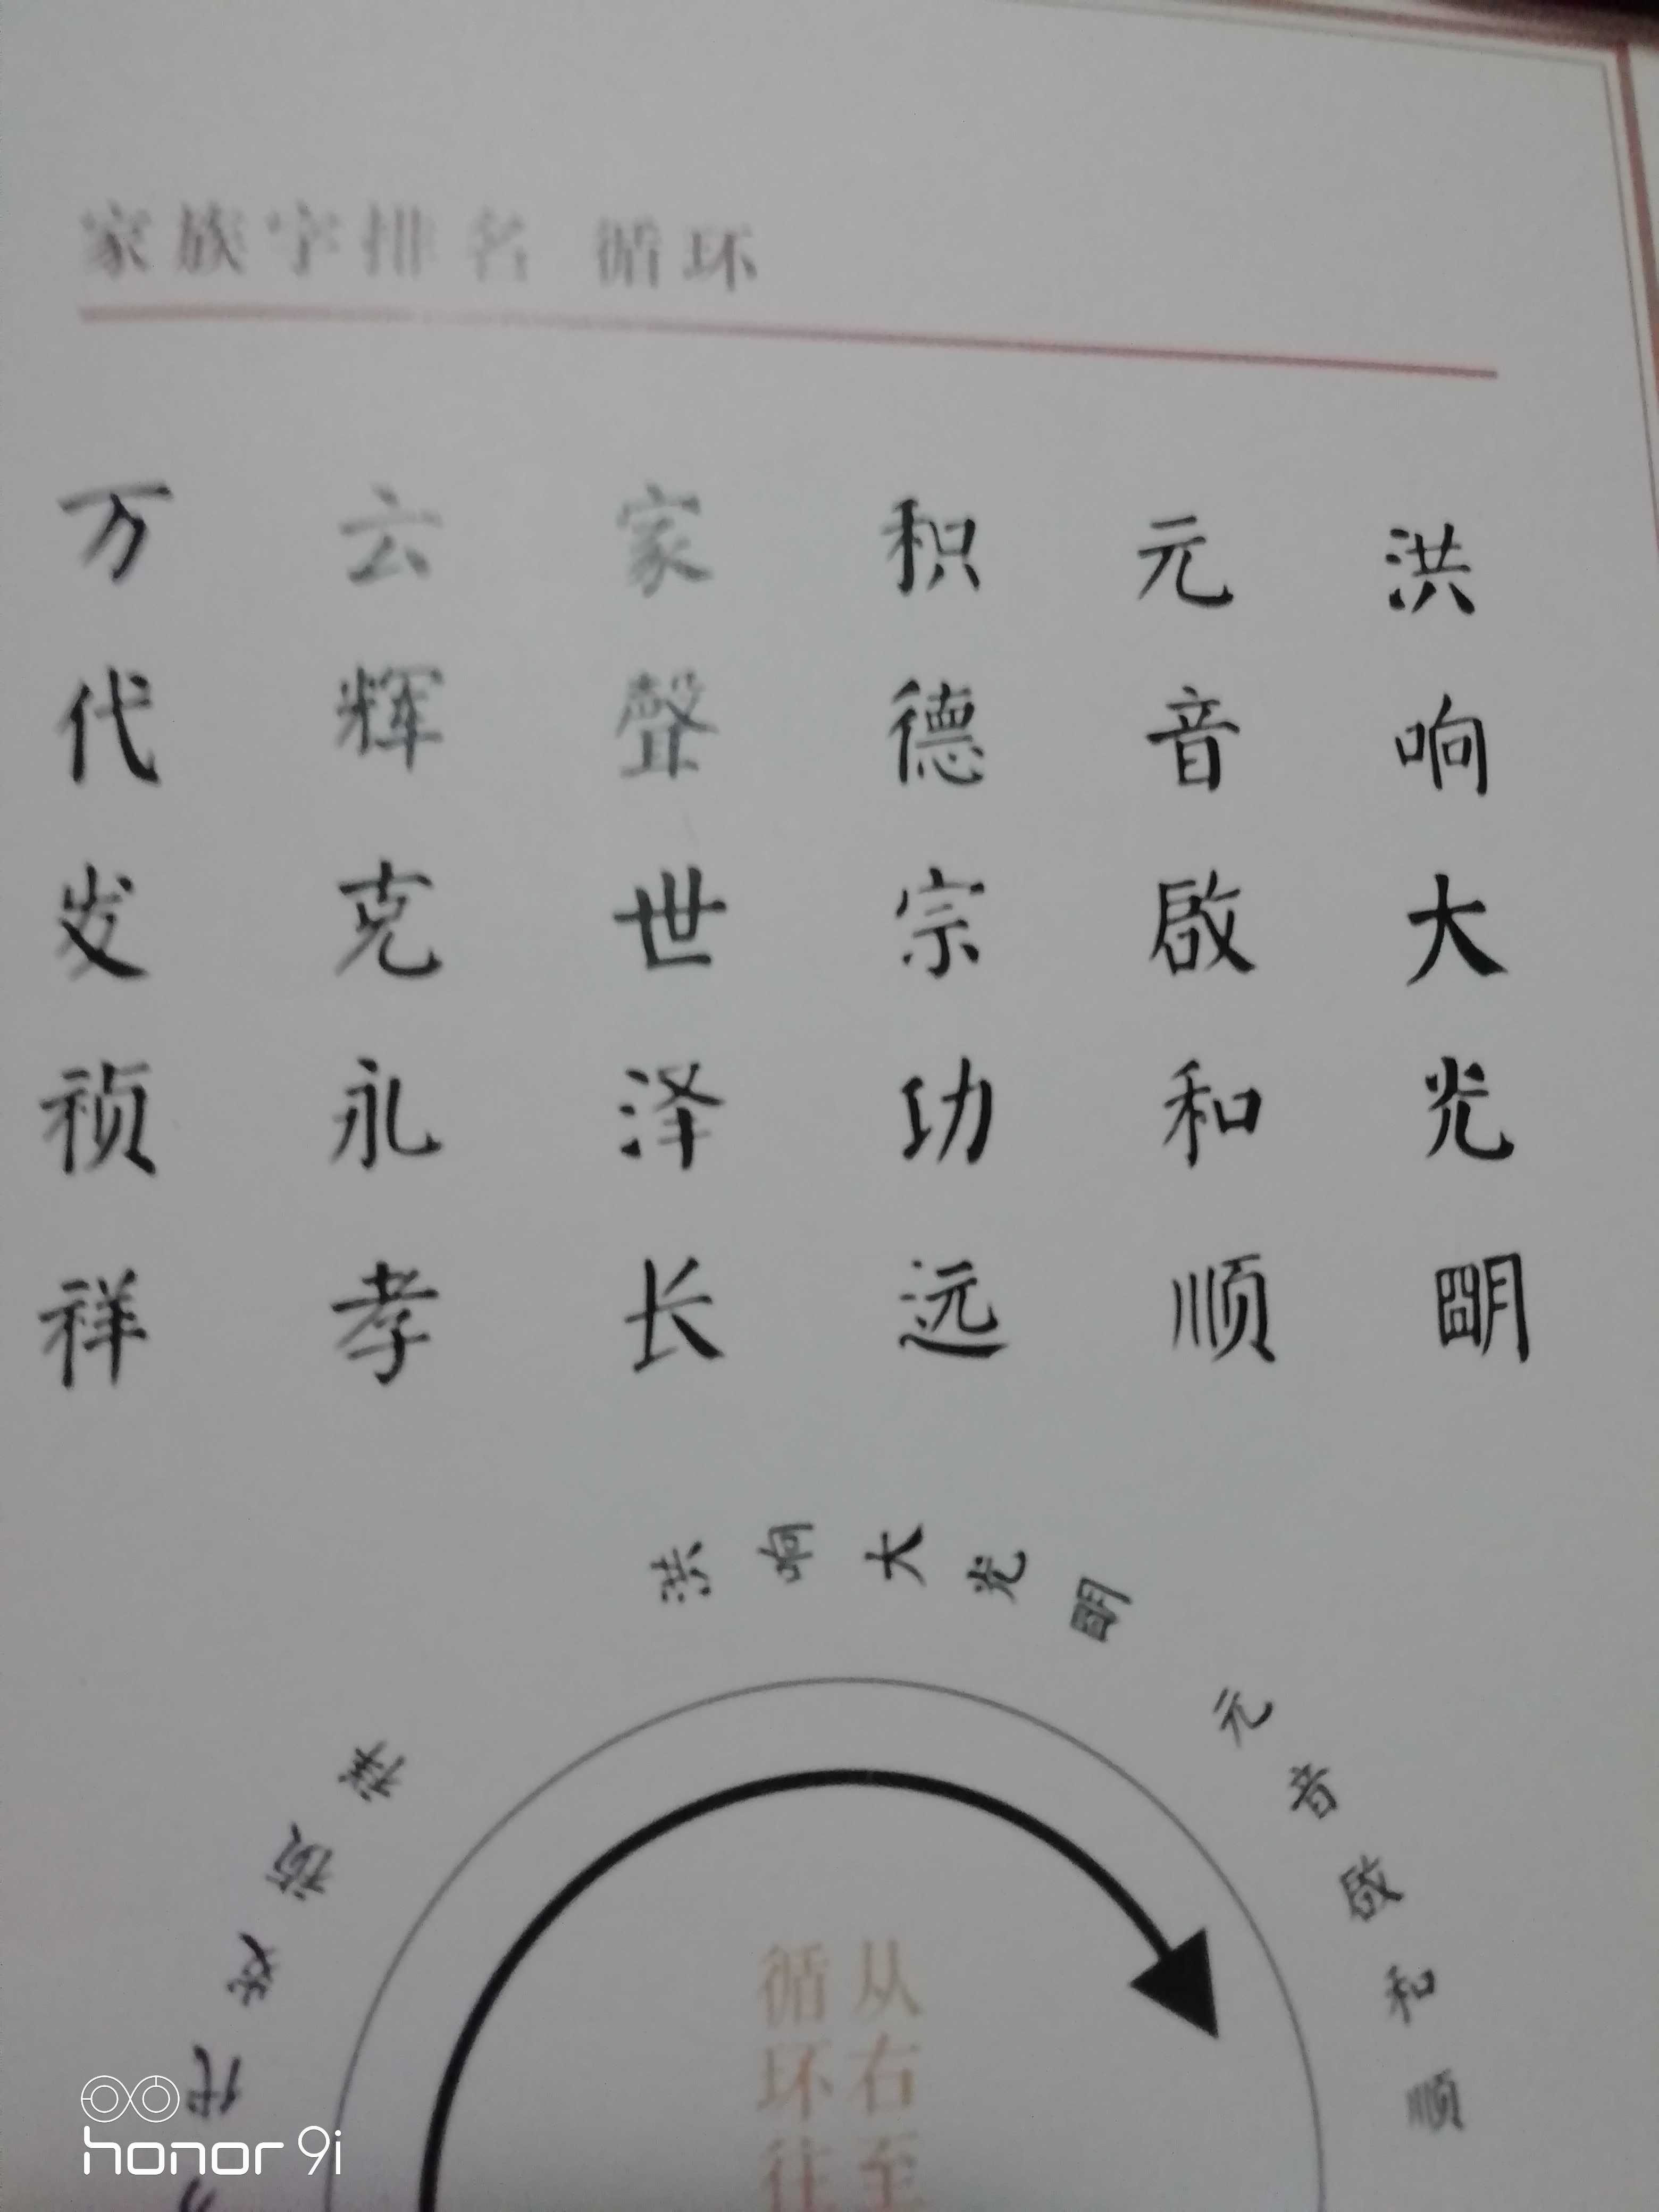 家族字排名 循环
洪响大光朙
元音啟和顺
积德宗功远
家聲世泽长
云辉克永孝
万代发祯祥
洪响大光明
元音啟和顺
代发祯祥
从右至
循环往
honor 9i